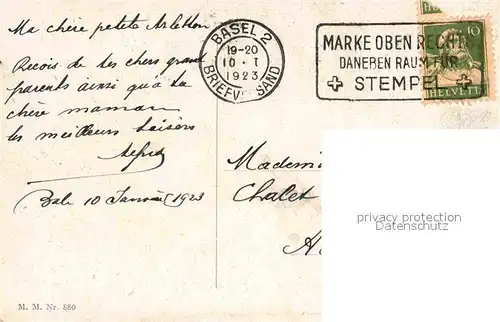 Ma chère petite Arletton
Reçois de tes chers grand
parents ainsi qu'à ta
chère maman
les meilleurs baisers
Alfred
Bâle 10 Janvier 1923
M. M. Nr. 880
BASEL 2
19-20
10·I
1923
BRIEFVERSAND
MARKE OBEN RECHTS
DANEBEN RAUM FÜR
STEMPEL
10
HELVETIA
Mademoi
Chalet
privacy protection
Datenschutz